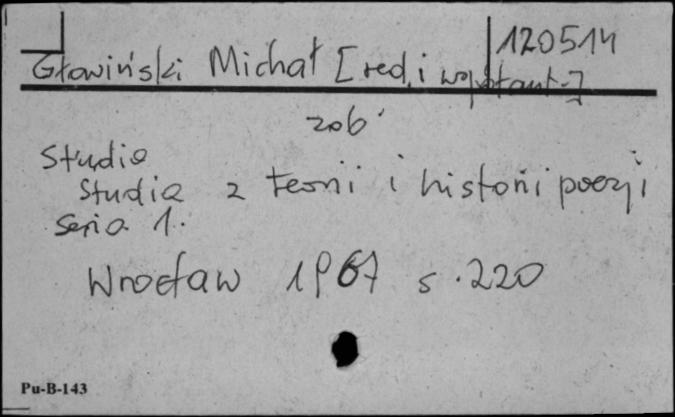 120514
Głowiński Michał [red. i współaut.]
zob.
Studia
Studia z teorii i historii poezji
Seria 1.
Wrocław 1967 s. 220
Pu-B-143